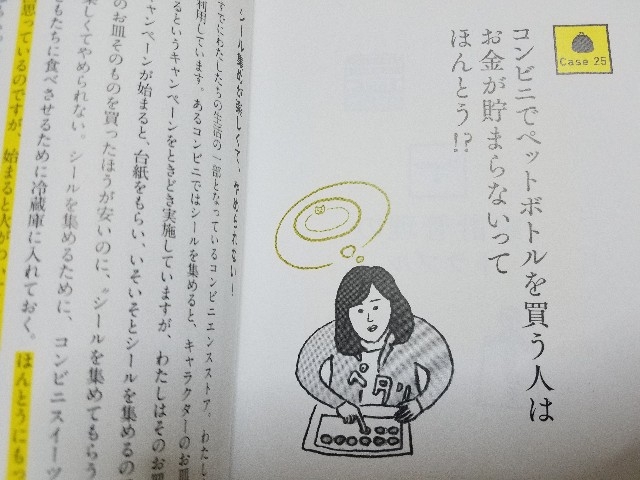 Case 25
コンビニでペットボトルを買う人は
お金が貯まらないって
ほんとう!?
ペタッ
シール集めが楽しくて、やめられない!
すでにわたしたちの生活の一部となっているコンビニエンスストア。わたし
利用しています。あるコンビニではシールを集めると、キャラクターのお皿
るというキャンペーンをときどき実施していますが、わたしはそのお皿
キャンペーンが始まると、台紙をもらい、いそいそとシールを集めるの
のお皿そのものを買ったほうが安いのに、“シールを集めてもらう
楽しくてやめられない。シールを集めるために、コンビニスイーツ
もたちに食べさせるために冷蔵庫に入れておく。ほんとうにもっ
思っているのですが、始まると